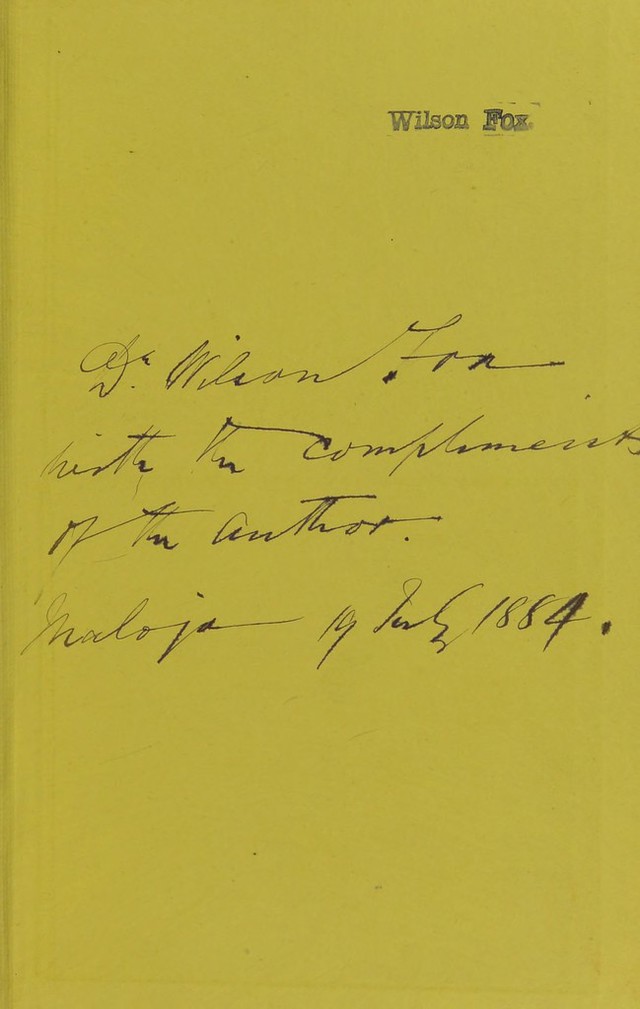 Wilson Fox.
Dr. Wilson Fox
with the compliments
of the author.
Maloja 19 July 1884.